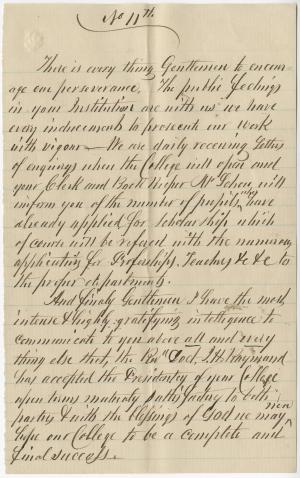 No 11th
There is every thing Gentlemen to encour
age our perseverance. The public feelings
in your Institution are with us we have
every inducement to prosecute our work
with vigour — We are daily receiving Letters
of enquiry when the College will open and
your Clerk and Book Keeper Mr Schou will
inform you of the number of pupils, who
already applied for scholarship which
of course will be refered with the numerous
applications for Proferships. Teachers &c &c to
the proper departments.
And finaly Gentlemen I have the most
intense & highly gratifying inteligence to
communicate to you above all and every
thing else that, the Revd Doct. J. H. Raymond
has accepted the Presidentcy of your College
upon terms mutualy satisfactory to both
parties & with the blessings of God we may now
hope our College to be a complete and
final success.